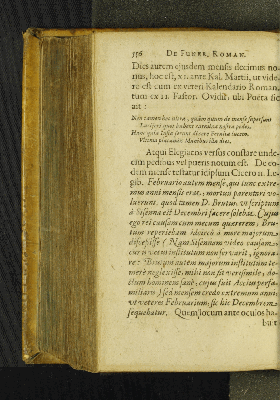 556 DE FUNER. ROMAN.
Dies autem ejusdem mensis decimus no-
nus, hoc est, XI. ante Kal. Martii, ut vide-
re est cum ex veteri Kalendario Roman.
tum ex II. Fastor. Ovidii, ubi Poëta sic
ait:
Atqui Elegiacus versus constare unde-
cim pedibus vel pueris notum est. De eo-
dem mense testatur id ipsum Cicero II. Le-
gib. Februario autem mense, qui tunc extre-
mus anni mensis erat, mortuis parentari vo-
luerunt. quod tamen D. Brutus, ut scriptum
à Sisenna est Decembri facere solebat. Cujus
ego rei causam cum mecum quaererem, Bru-
tum reperiebam idcirco à more majorum
discessisse (Nam Sisennam video causam,
cur is vetus institutum non servarit, ignora-
re: Brutum autem majorum institutum te-
mere neglexisse, mihi non fit verisimile, do-
ctum hominem sanè, cujus fuit Accius perfa-
miliaris) sed mensem credo extremum anni,
ut veteres Februarium, sic hic Decembrem
sequebatur. Quem locum ante oculos ha-
buit